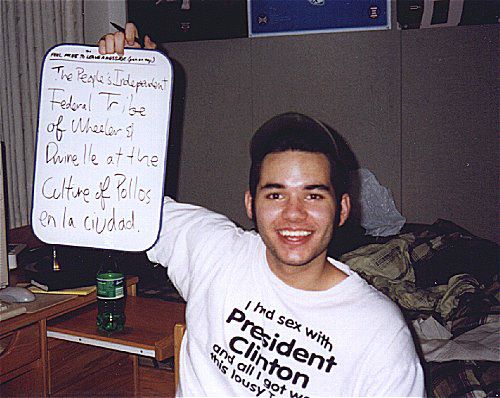 FEEL FREE TO LEAVE A MESSAGE
The People's Independent
Federal Tribe
of Wheeler &
Dwinelle at the
Culture of Pollos
en la ciudad.
I had sex with
President
Clinton
and all I got was
this lousy T